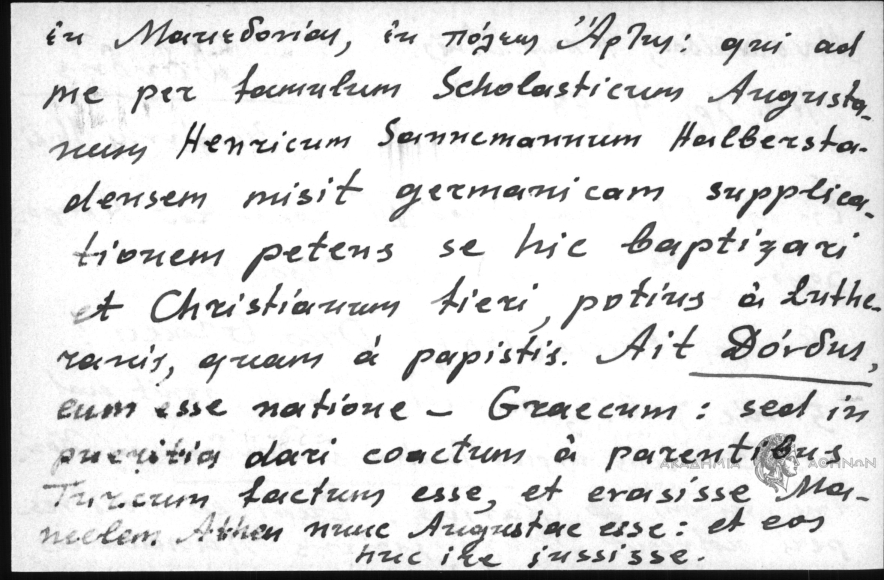 in Μακεδονίαν, in πόλεως Ἄρτης: qui ad
me per famulum Scholasticum Augusta-
num Henricum Sannemannum Halbersta-
densem misit germanicam supplica-
tionem petens se hic baptizari
et Christianum fieri, potius à Luthe-
ranis, quam à papistis. Ait Δόνδης,
eum esse natione - Graecum: sed in
pueritia dari coactum à parentibus
Turcum factum esse, et evasisse Ma-
nuelem nunc Augustae esse: et eos
huc ire jussisse.
ΑΚΑΔΗΜΙΑ ΑΘΗΝΩΝ